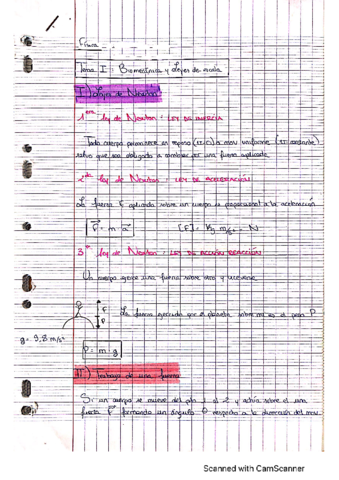 1.
Física
Tema I : Biomecánica y Leyes de escala
I) Leyes de Newton
1era ley de Newton : LEY DE INERCIA
Todo cuerpo permanece en reposo (v=0) o mov uniforme (v= constante)
salvo que sea obligado a cambiar por una fuerza aplicada.
2da ley de Newton : LEY DE ACELERACIÓN
La fuerza F aplicada sobre un cuerpo es proporcional a la aceleración
F = m · a [F] = Kg m/s² = N
3a ley de Newton : LEY DE ACCIÓN REACCIÓN
Un cuerpo ejerce una fuerza sobre otro y viceversa
F
P
La fuerza ejercida por el planeta sobre m es el peso P
g = 9,8 m/s²
P = m · g
II) Trabajo de una fuerza
Si un cuerpo se mueve del pto 1 al 2 y actúa sobre él una
fuerza F formando un ángulo θ respecto a la dirección del mov.
Scanned with CamScanner